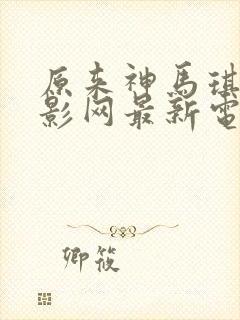 原来神馬琪
影网最新電
卿筱